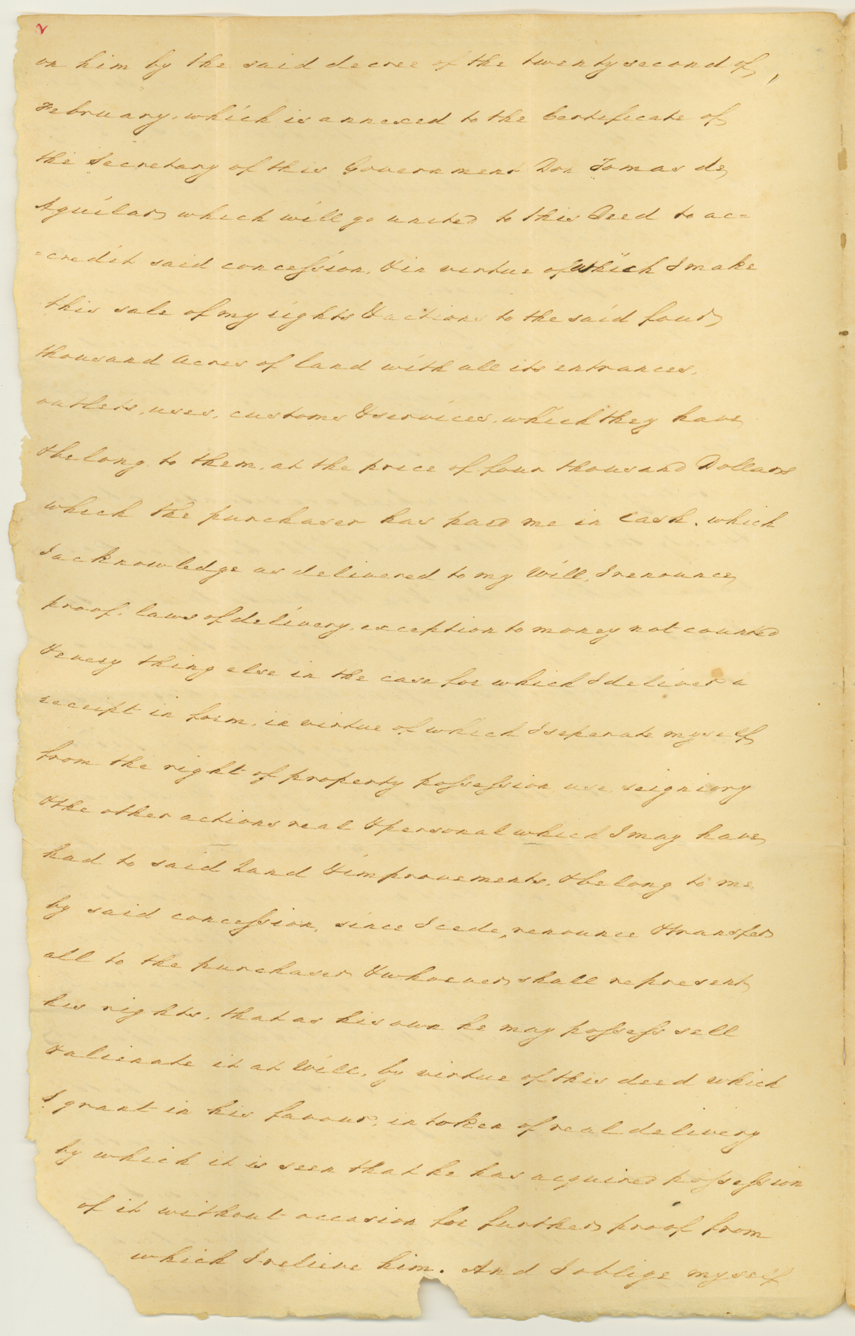 2
on him by the said decree of the twenty second of,
February, which is annexed to the Certificate of,
the Secretary of this Government Don Tomas de,
Aguilar, which will go united to this Deed to ac-
-credit said concession, & in virtue of which I make
this sale of my rights & actions to the said four,
thousand acres of land with all its entrances,
outlets, uses, customs & services, which they have,
& belong to them, at the price of four thousand Dollars
which the purchaser has paid me in cash, which
I acknowledge as delivered to my Will, I renounce,
proof, laws of delivery, exception to money not counted
& every thing else in the case for which I deliver a
receipt in form, in virtue of which I seperate myself,
from the right of property possession use seigniory
& the other actions real & personal which I may have,
had to said Land & improvements, & belong to me
by said concession, since I cede, renounce & transfer
all to the purchaser & whoever, shall represent,
his rights, that as his own he may possess sell
& alienate it at Will, by virtue of this deed which
I grant in his favour, in token of real delivery
by which it is seen that he has acquired possession
of it without occasion for further, proof from
which I relieve him. And I oblige myself